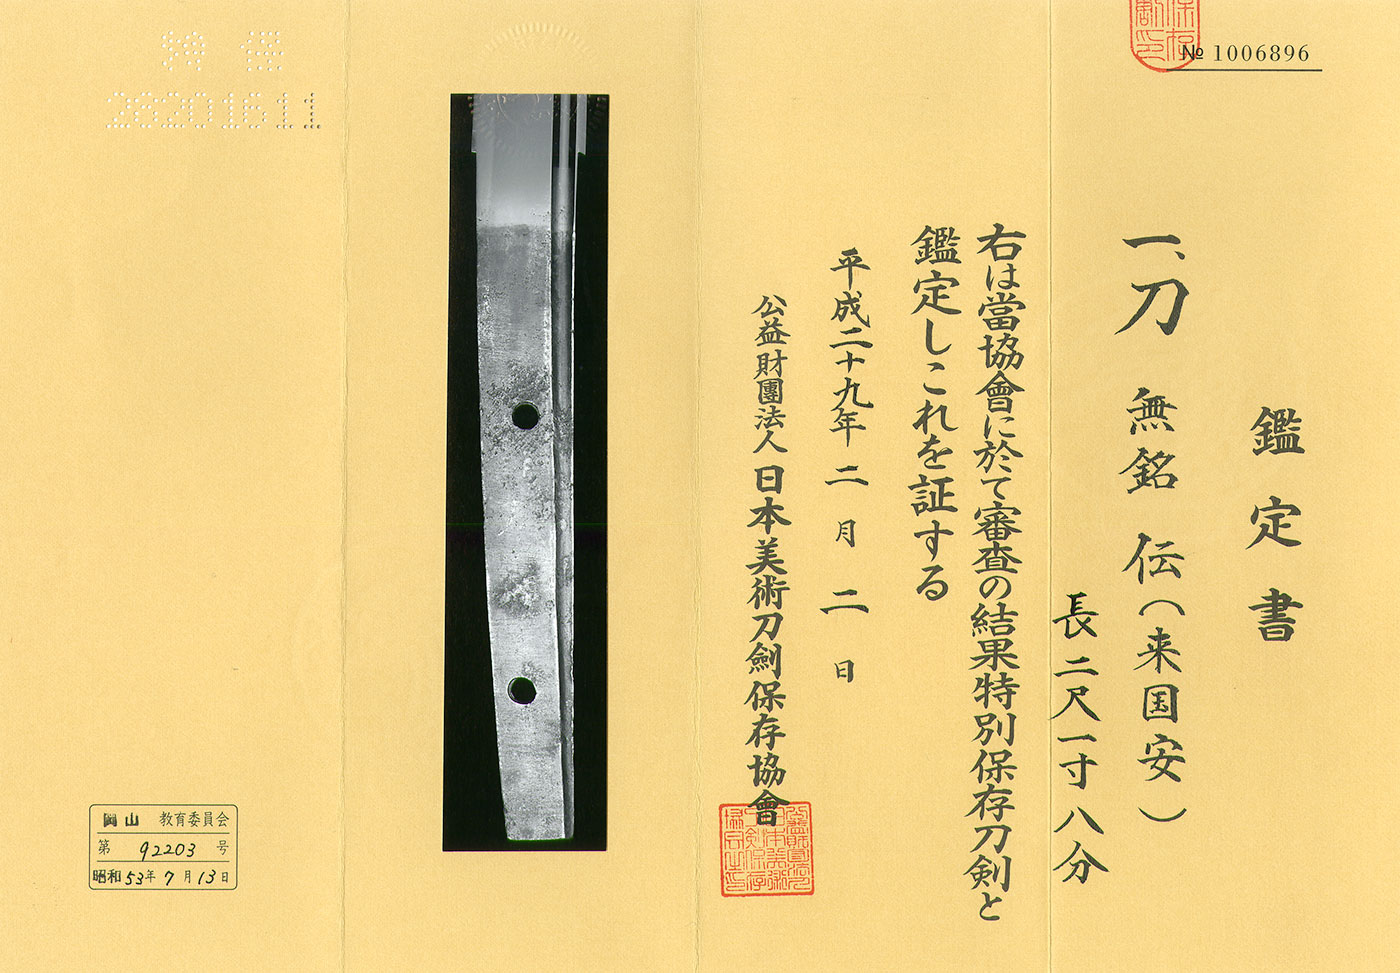 № 1006896
鑑定書
一、刀 無銘 伝(来国安)
長二尺一寸八分
右は當協會に於て審査の結果特別保存刀剣と
鑑定しこれを証する
平成二十九年二月二日
公益財團法人日本美術刀劍保存協會
特保
28201611
岡山 教育委員会
第 92203 号
昭和53年7月13日